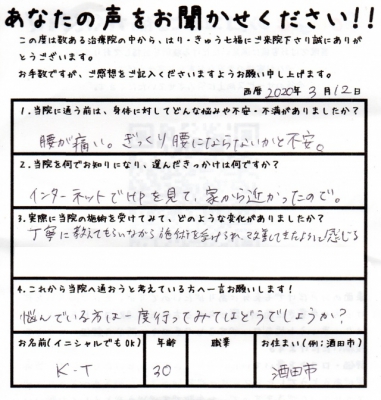 あなたの声をお聞かせください!!
この度は数ある治療院の中から、はり・きゅう七福にご来院下さり誠にありが
とうございます。
お手数ですが、ご感想をご記入くださいますようお願い申し上げます。
西暦 2020年 3月 12日
1.当院に通う前は、身体に対してどんな悩みや不安・不満がありましたか?
腰が痛い。ぎっくり腰にならないかと不安。
2.当院を何でお知りになり、選んだきっかけは何ですか?
インターネットでHPを見て、家から近かったので。
3.実際に当院の施術を受けてみて、どのような変化がありましたか?
丁寧に教えてもらいながら施術を受けられ、改善してきたように感じる
4.これから当院へ通おうと考えている方へ一言お願いします!
悩んでいる方は一度行ってみてはどうでしょうか?
お名前(イニシャルでもOK) 年齢 職業 お住まい(例:酒田市)
K-T 30 酒田市